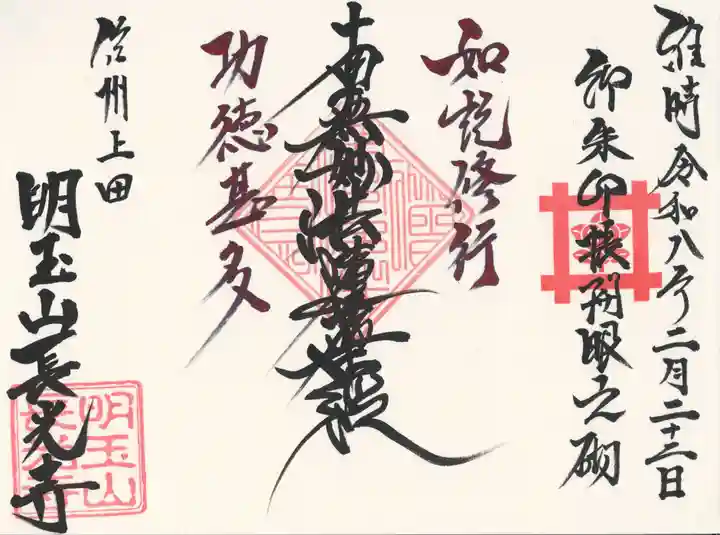 維時令和八年二月二十三日
御朱印帳開眼之砌
如説修行
南無妙法蓮華経
功徳甚多
信州上田
明玉山長光寺
明玉山
長光寺